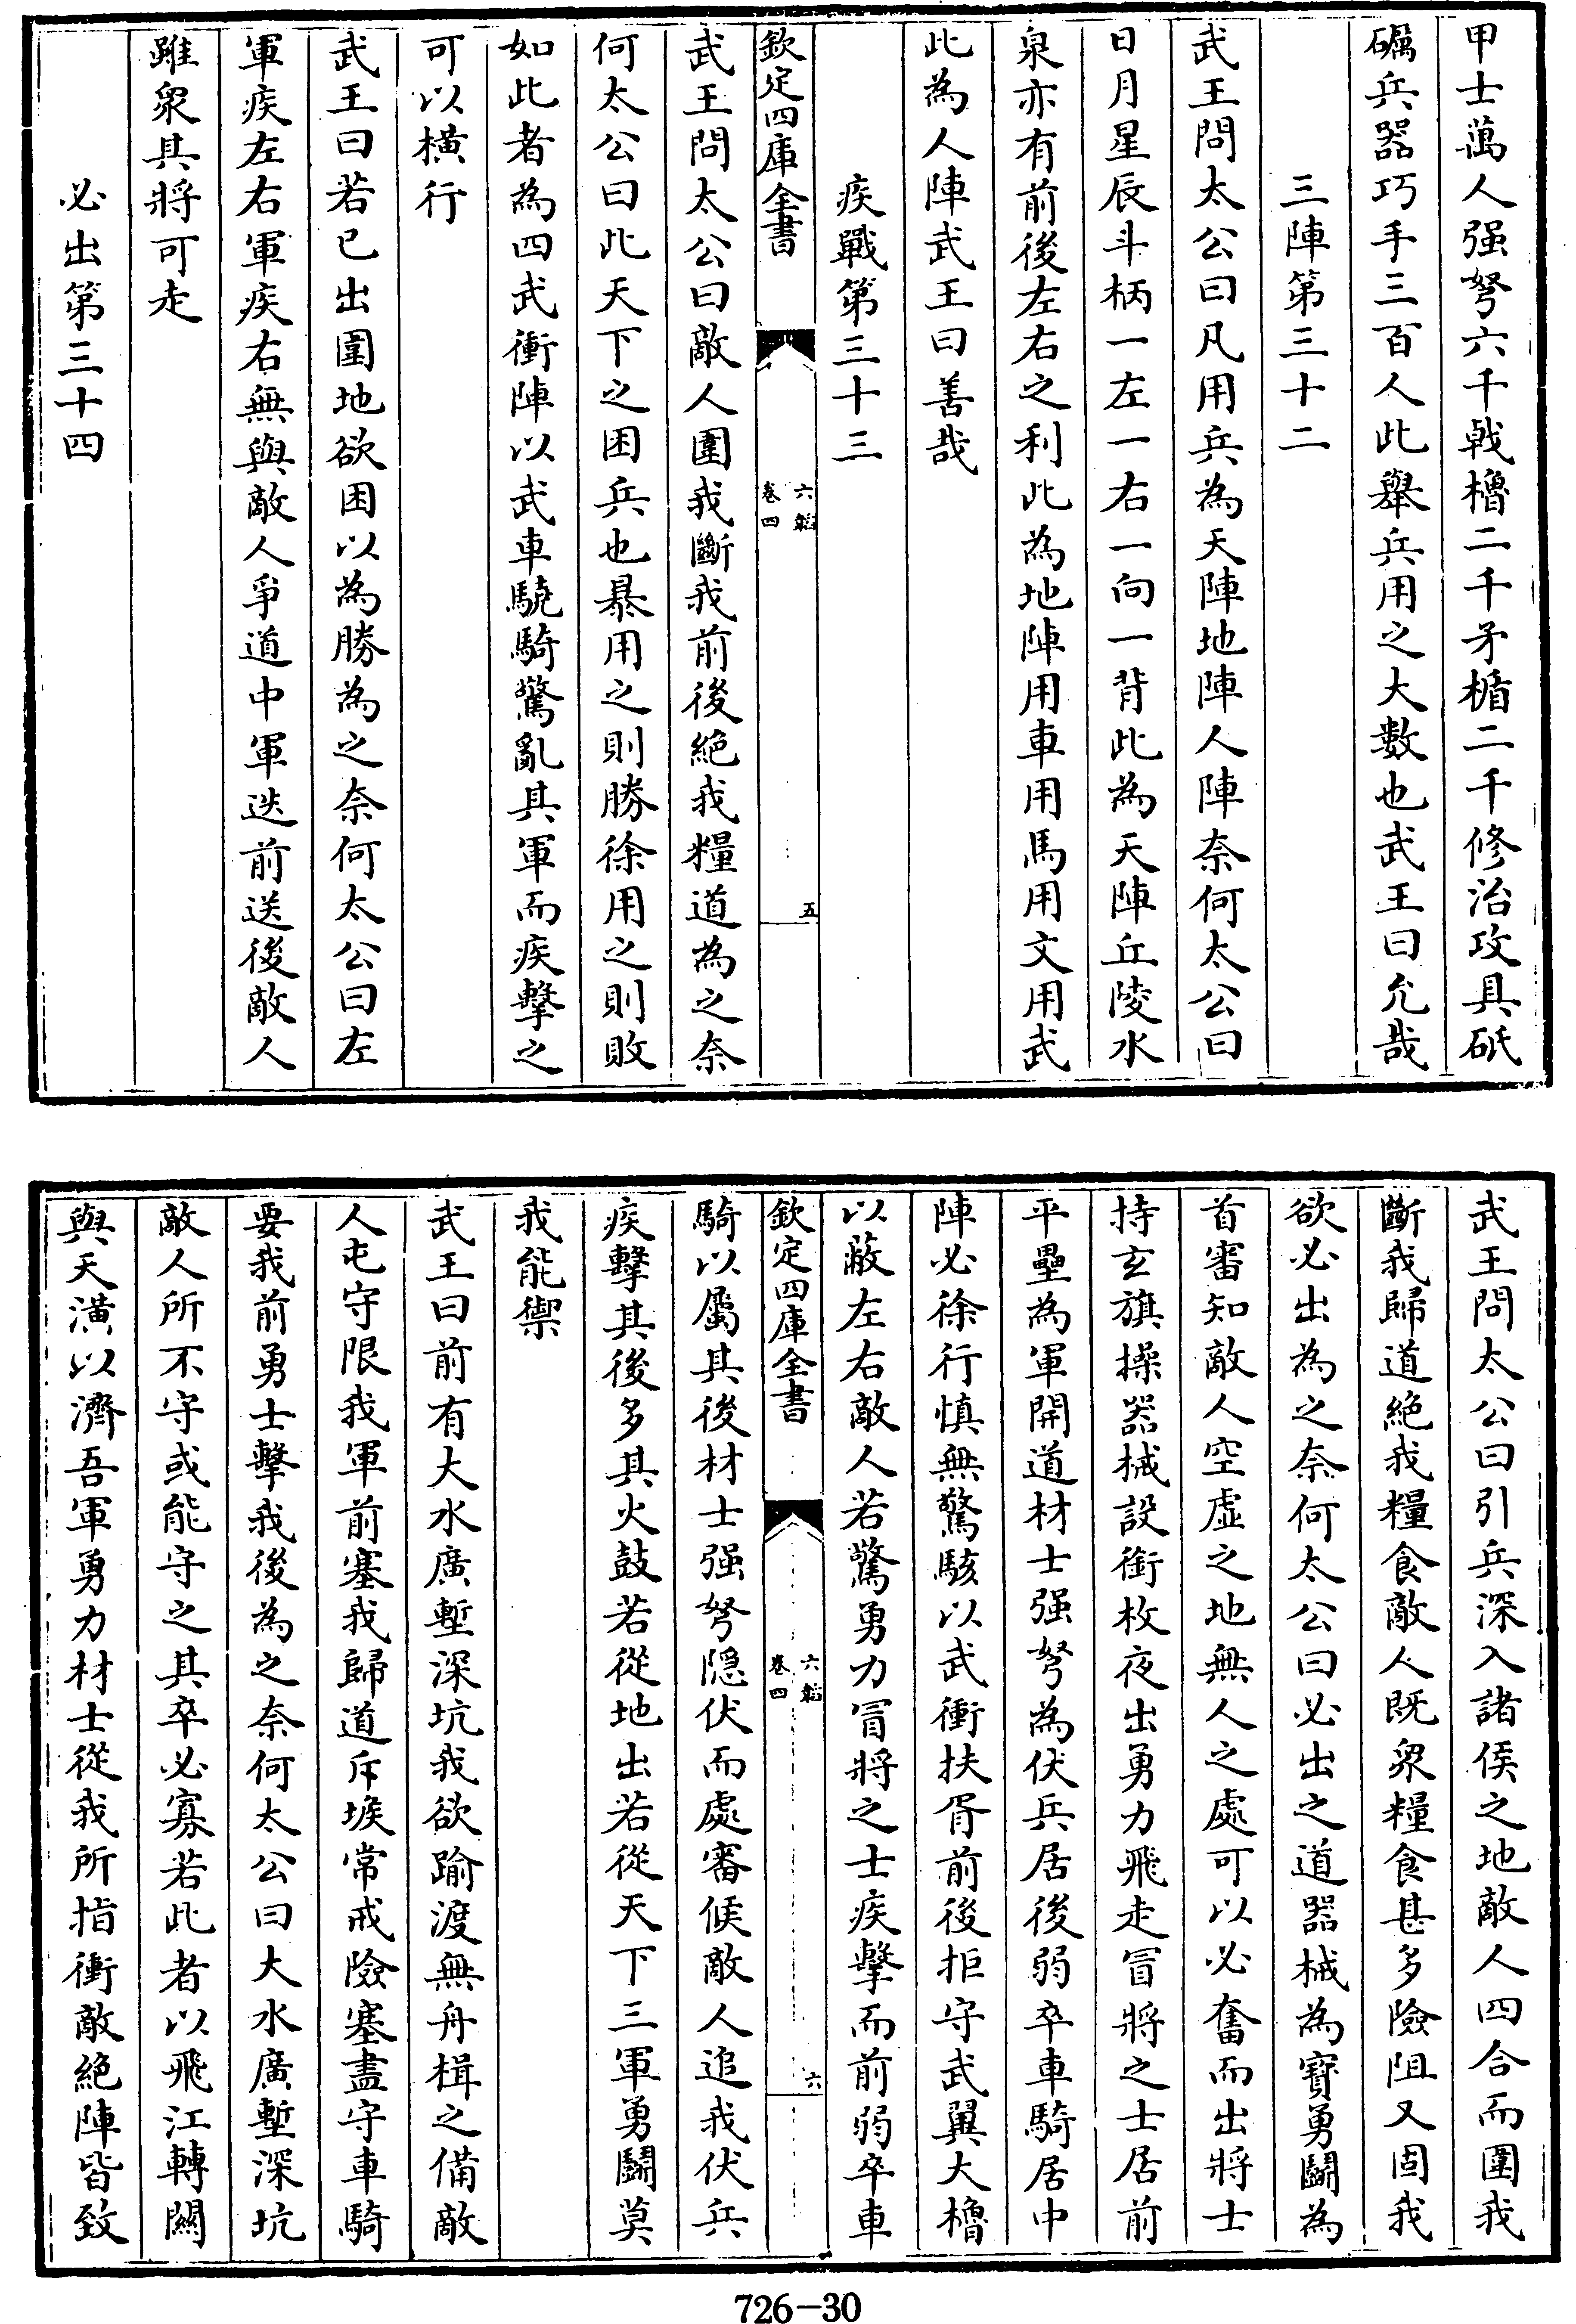 甲士萬人强弩六千戟櫓二千矛楯二千修治攻具砥
礪兵器巧手三百人此舉兵用之大數也武王曰允哉
三陣第三十二
武王問太公曰凡用兵為天陣地陣人陣奈何太公曰
日月星辰斗柄一左一右一向一背此為天陣丘陵水
泉亦有前後左右之利此為地陣用車用馬用文用武
此為人陣武王曰善哉
疾戰第三十三
欽定四庫全書
六韜
卷四
五
武王問太公曰敵人圍我斷我前後絶我糧道為之奈
何太公曰此天下之困兵也暴用之則勝徐用之則敗
如此者為四武衝陣以武車驍騎驚亂其軍而疾擊之
可以橫行
武王曰若已出圍地欲困以為勝為之奈何太公曰左
軍疾左右軍疾右無與敵人爭道中軍迭前送後敵人
雖衆其將可走
必出第三十四
武王問太公曰引兵深入諸侯之地敵人四合而圍我
斷我歸道絶我糧食敵人既衆糧食甚多險阻又固我
欲必出為之奈何太公曰必出之道器械為寳勇鬭為
首審知敵人空虛之地無人之處可以必奮而出將士
持玄旗操器械設銜枚夜出勇力飛走冒將之士居前
平壘為軍開道材士强弩為伏兵居後弱卒車騎居中
陣必徐行慎無驚駭以武衝扶胥前後拒守武翼大櫓
以蔽左右敵人若驚勇力冒將之士疾擊而前弱卒車
欽定四庫全書
六韜
卷四
六
騎以屬其後材士强弩隱伏而處審候敵人追我伏兵
疾擊其後多其火鼓若從地出若從天下三軍勇鬭莫
我能禦
武王曰前有大水廣塹深坑我欲踰渡無舟楫之備敵
人屯守限我軍前塞我歸道斥堠常戒險塞盡守車騎
要我前勇士擊我後為之奈何太公曰大水廣塹深坑
敵人所不守或能守之其卒必寡若此者以飛江轉關
與天潢以濟吾軍勇力材士從我所指衝敵絶陣皆致
726-30